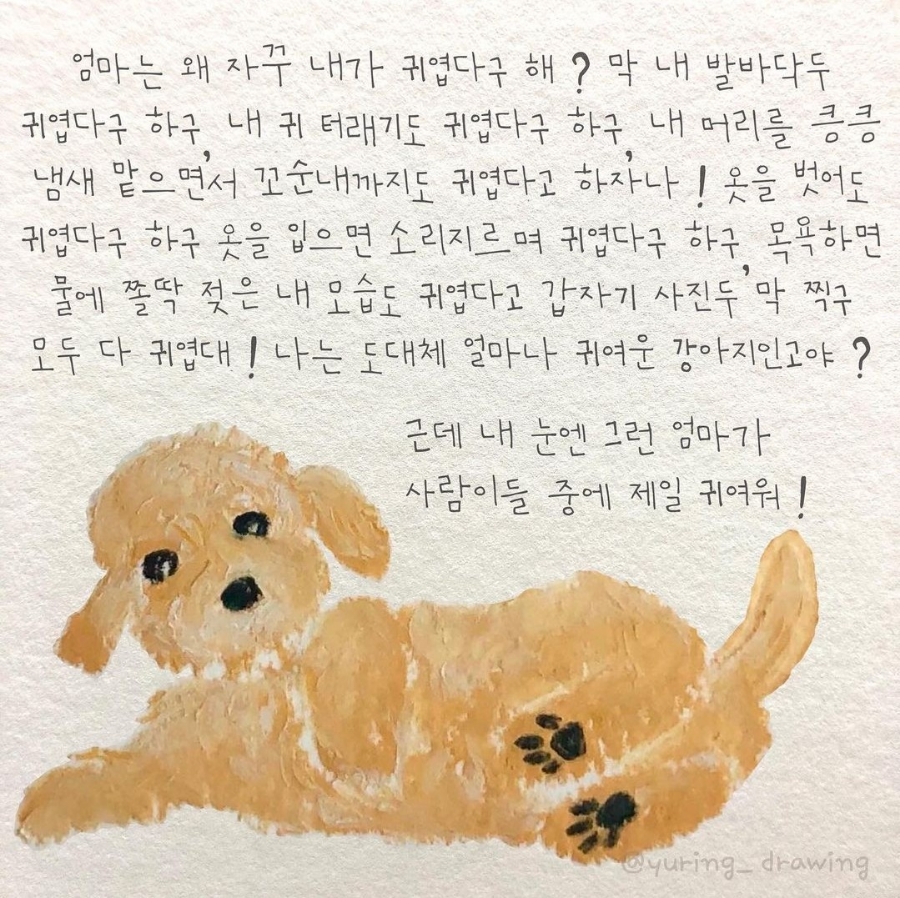 엄마는 왜 자꾸 내가 귀엽다구 해? 막 내 발바닥두
귀엽다구 하구, 내 귀 터래기도 귀엽다구 하구, 내 머리를 킁킁
냄새 맡으면서 꼬순내까지도 귀엽다고 하자나! 옷을 벗어도
귀엽다구 하구 옷을 입으면 소리지르며 귀엽다구 하구, 목욕하면
물에 쫄딱 젖은 내 모습도 귀엽다고 갑자기 사진두 막 찍구
모두 다 귀엽대! 나는 도대체 얼마나 귀여운 강아지인고야?
근데 내 눈엔 그런 엄마가
사람이들 중에 제일 귀여워!
@yuring_drawing